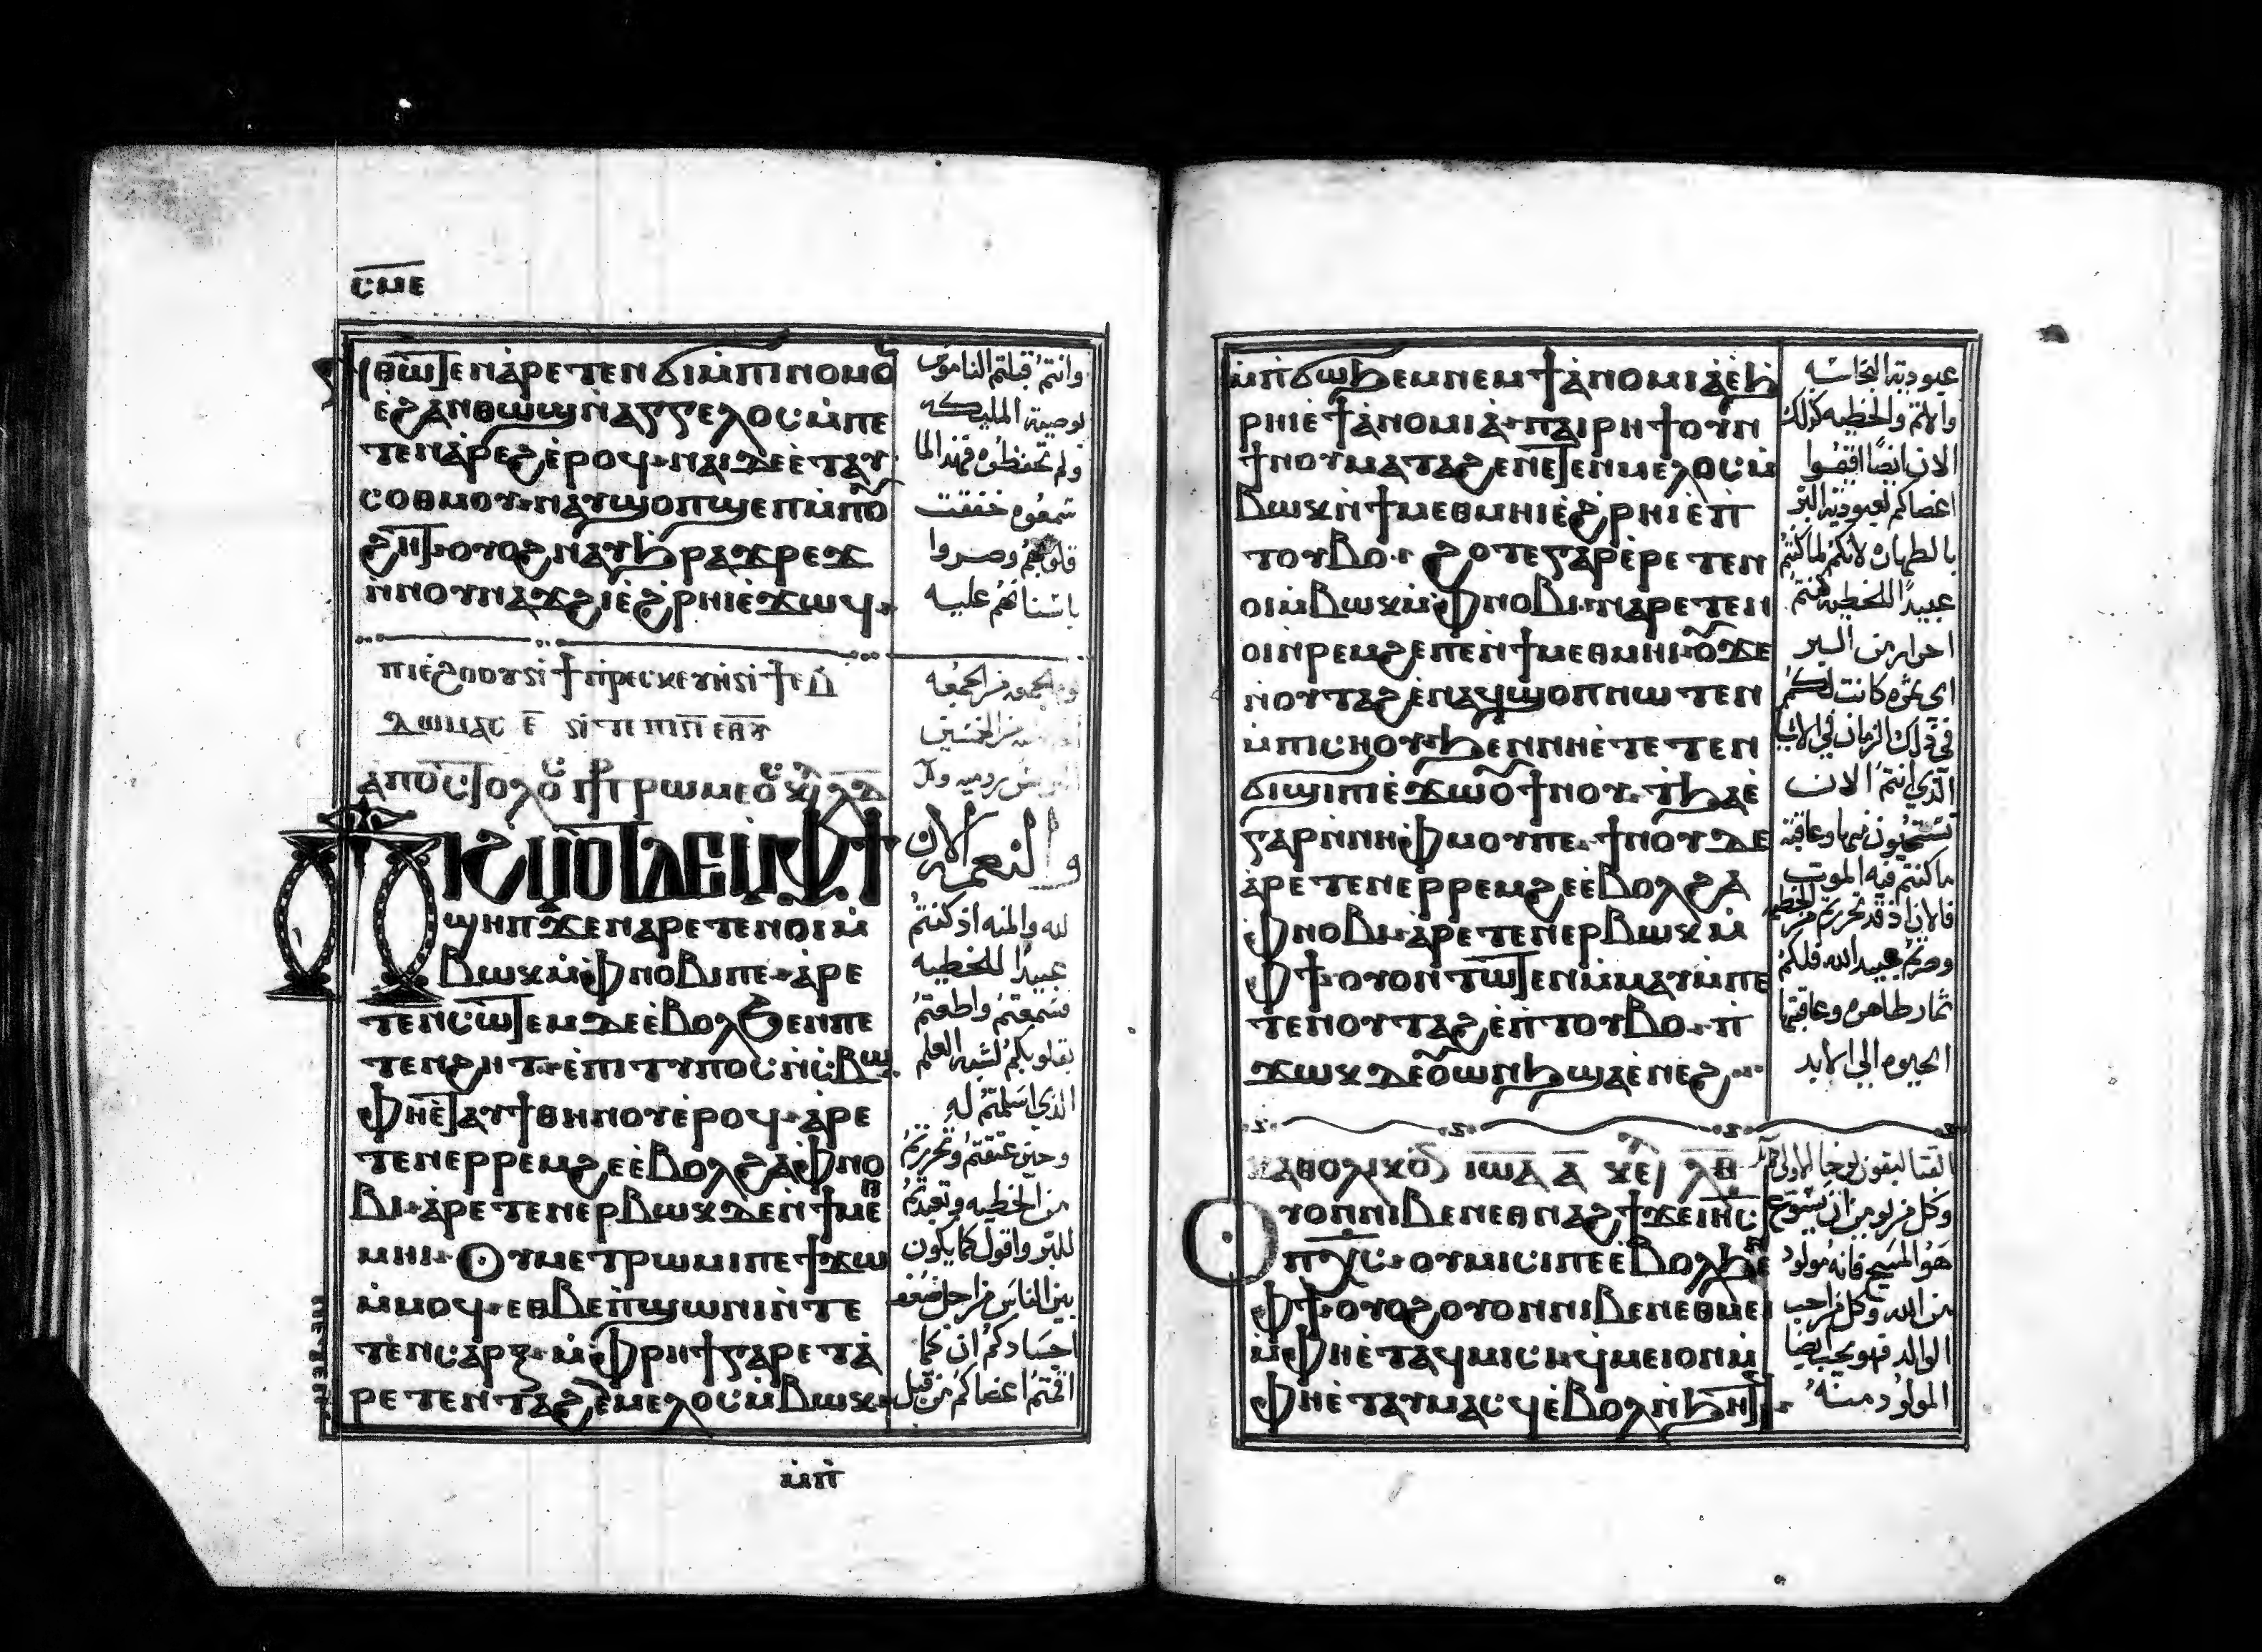 ⲥⲙⲉ
ⲛ̀ⲑⲱⲧⲉⲛ ⲁ̀ⲣⲉⲧⲉⲛϭⲓ ⲙ̀ⲡⲓⲛⲟⲙⲟ
ⲉ̀ϩⲁⲛⲑⲱϣ ⲛ̀ⲁⲅⲅⲉⲗⲟⲥ ⲙ̀ⲡⲉ
ⲧⲉⲛⲁ̀ⲣⲉϩ ⲉ̀ⲣⲟϥ· ⲛⲁⲓ ⲇⲉ ⲉ̀ⲧⲁⲩ
ⲥⲟⲑⲙⲟⲩ· ⲛⲁⲩϣⲟⲡϣⲉⲡ ⲙ̀ⲡⲟ
ϩⲏⲧ· ⲟⲩⲟϩ ⲛⲁⲩϧⲣⲁϫⲣⲉϫ
ⲛ̀ⲛⲟⲩⲛⲁϫϩⲓ ⲉ̀ϩⲣⲏⲓ ⲉ̀ϫⲱϥ·
وانتم قبلتم الناموس
بوصية المليكه
ولم تحفظوه فهذا لما
سمعوه خفقت
قلوبهم وصروا
باسنانهم عليه
ⲁⲡⲟⲥⲧⲟⲗⲟⲥ ⲡⲣⲟⲥ ⲣⲱⲙⲉⲟⲥ
ⲡϩⲙⲟⲧ ⲇⲉ ⲙ̀ⲫϯ
ϣⲏⲡ ϫⲉ ⲛⲁⲣⲉⲧⲉⲛⲟⲓ ⲙ̀
ⲃⲱⲕ ⲙ̀ⲫⲛⲟⲃⲓ ⲡⲉ· ⲁ̀ⲣⲉ
ⲧⲉⲛⲥⲱⲧⲉⲙ ⲇⲉ ⲉ̀ⲃⲟⲗϧⲉⲛ ⲡⲉ
ⲧⲉⲛϩⲏⲧ· ⲉ̀ⲡⲓⲧⲩⲡⲟⲥ ⲛ̀ⲥ̀ⲃⲱ
ⲫⲏⲉ̀ⲧⲁⲩϯⲑⲏⲛⲟⲩ ⲉ̀ⲣⲟϥ· ⲁ̀ⲣⲉ
ⲧⲉⲛⲉⲣⲣⲉⲙϩⲉ ⲉ̀ⲃⲟⲗϩⲁ ⲫⲛⲟ
ⲃⲓ· ⲁ̀ⲣⲉⲧⲉⲛⲉⲣⲃⲱⲕ ⲇⲉ ⲛ̀ϯⲙⲉⲑ
ⲙⲏⲓ· ⲟⲩⲙⲉⲧⲣⲱⲙⲓ ⲡⲉϯϫⲱ
ⲙ̀ⲙⲟϥ· ⲉⲑⲃⲉ ⲡ̀ϣⲱⲛⲓ ⲛ̀ⲧⲉ
ⲧⲉⲛⲥⲁⲣⲝ· ⲙ̀ⲫⲣⲏϯ ⲅⲁⲣ ⲉⲧⲁ̀
ⲣⲉⲧⲉⲛⲧⲁϩⲉ ⲙⲉⲗⲟⲥ ⲙ̀ⲃⲱⲕ·
والنعمه الان
لله والمنه اذ كنتم
عبيدًا للخطيه
فسمعتم واطعتم
بقلوبكم لشبه العلم
الذي اسلمتم له
وحين عتقتم وتحررتم
من الخطيه وتعبدتم
للبر واقول كما يكون
بين الناس من اجل ضعف
اجسادكم ان كما
اقمتم اعضاكم من قبل
ⲙ̀ⲡ
ⲙ̀ⲡϭⲱϧⲉⲙ ⲛⲉⲙ ϯⲁ̀ⲛⲟⲙⲓⲁ̀ ⲉ̀ϧ
ⲣⲏⲓ ⲉ̀ϯⲁ̀ⲛⲟⲙⲓⲁ̀· ⲡⲁⲓⲣⲏϯ ⲟⲩⲛ
ϯⲛⲟⲩ ⲙⲁⲧⲁϩⲉ ⲛⲉⲧⲉⲛⲙⲉⲗⲟⲥ ⲙ̀
ⲃⲱⲕ ⲛ̀ϯⲙⲉⲑⲙⲏⲓ ⲉ̀ϩⲣⲏⲓ ⲉ̀ⲡ̀
ⲧⲟⲩⲃⲟ· ϩⲟⲧⲉ ⲅⲁⲣ ⲉ̀ⲣⲉⲧⲉⲛ
ⲟⲓ ⲙ̀ⲃⲱⲕ ⲙ̀ⲫⲛⲟⲃⲓ· ⲛⲁⲣⲉⲧⲉⲛ
ⲟⲓ ⲛ̀ⲣⲉⲙϩⲉ ⲡⲉ ⲛ̀ϯⲙⲉⲑⲙⲏⲓ· ⲟⲩ ϫⲉ
ⲛ̀ⲟⲩⲧⲁϩ ⲉ̀ⲛⲁϥϣⲟⲡ ⲛⲱⲧⲉⲛ
ⲙ̀ⲡⲓⲥⲏⲟⲩ· ϧⲉⲛ ⲛⲏⲉ̀ⲧⲉⲧⲉⲛ
ϭⲓϣⲓⲡⲓ ⲉ̀ϫⲱⲟⲩ ϯⲛⲟⲩ· ⲧ̀ϧⲁⲉ̀
ⲅⲁⲣ ⲛ̀ⲛⲏ ⲫⲙⲟⲩ ⲡⲉ· ϯⲛⲟⲩ ⲇⲉ
ⲁ̀ⲣⲉⲧⲉⲛⲉⲣⲣⲉⲙϩⲉ ⲉ̀ⲃⲟⲗϩⲁ
ⲫⲛⲟⲃⲓ· ⲁ̀ⲣⲉⲧⲉⲛⲉⲣⲃⲱⲕ ⲙ̀
ⲫϯ· ⲟⲩⲟⲛⲧⲱⲧⲉⲛ ⲙ̀ⲙⲁⲩ ⲙ̀ⲡⲉ
ⲧⲉⲛⲟⲩⲧⲁϩ ⲉ̀ⲡ̀ⲧⲟⲩⲃⲟ· ⲡ̀
ϫⲱⲕ ⲇⲉ ⲟⲩⲱⲛϧ ϣⲁⲉ̀ⲛⲉϩ·
عبودية النجاسه
والاثم والخطيه كذلك
الان ايضًا اقيموا
اعضاكم لعبودية البر
بالطهاره لانكم لما كنتم
عبيدًا للخطيه كنتم
احرار من البر
اى ثمره كانت لكم
في ذلك الزمان في الاشيا
الذي انتم الان
تستحيون منها وعاقبة
ما كنتم فيه الموت
فالان اذ قد تحررتم من الخطيه
وصرتم عبيد الله فلكم
ثمار طاهره وعاقبتها
الحيوه الى الابد
ⲕⲁⲑⲟⲗⲓⲕⲟⲛ ⲓⲱⲁ ⲁ ⲕⲉⲫ ⲗⲃ
ⲟⲩⲟⲛ ⲛⲓⲃⲉⲛ ⲉⲑⲛⲁϩϯ ϫⲉ ⲓⲏⲥ
ⲡⲭⲥ· ⲟⲩⲙⲓⲥⲓ ⲡⲉ ⲉ̀ⲃⲟⲗϧⲉⲛ
ⲫϯ· ⲟⲩⲟϩ ⲟⲩⲟⲛ ⲛⲓⲃⲉⲛ ⲉⲑⲙⲉⲓ
ⲙ̀ⲫⲏⲉ̀ⲧⲁϥⲙⲓⲥⲓ ϥⲙⲉⲓ ⲟⲛ ⲙ̀
ⲫⲏⲉ̀ⲧⲁⲩⲙⲁⲥϥ ⲉ̀ⲃⲟⲗ ⲛ̀ϧⲏⲧϥ·
وكل من يومن ان يسوع
هو المسيح فانه مولود
من الله وكل من احب
الوالد فهو يحب ايضا
المولود منه